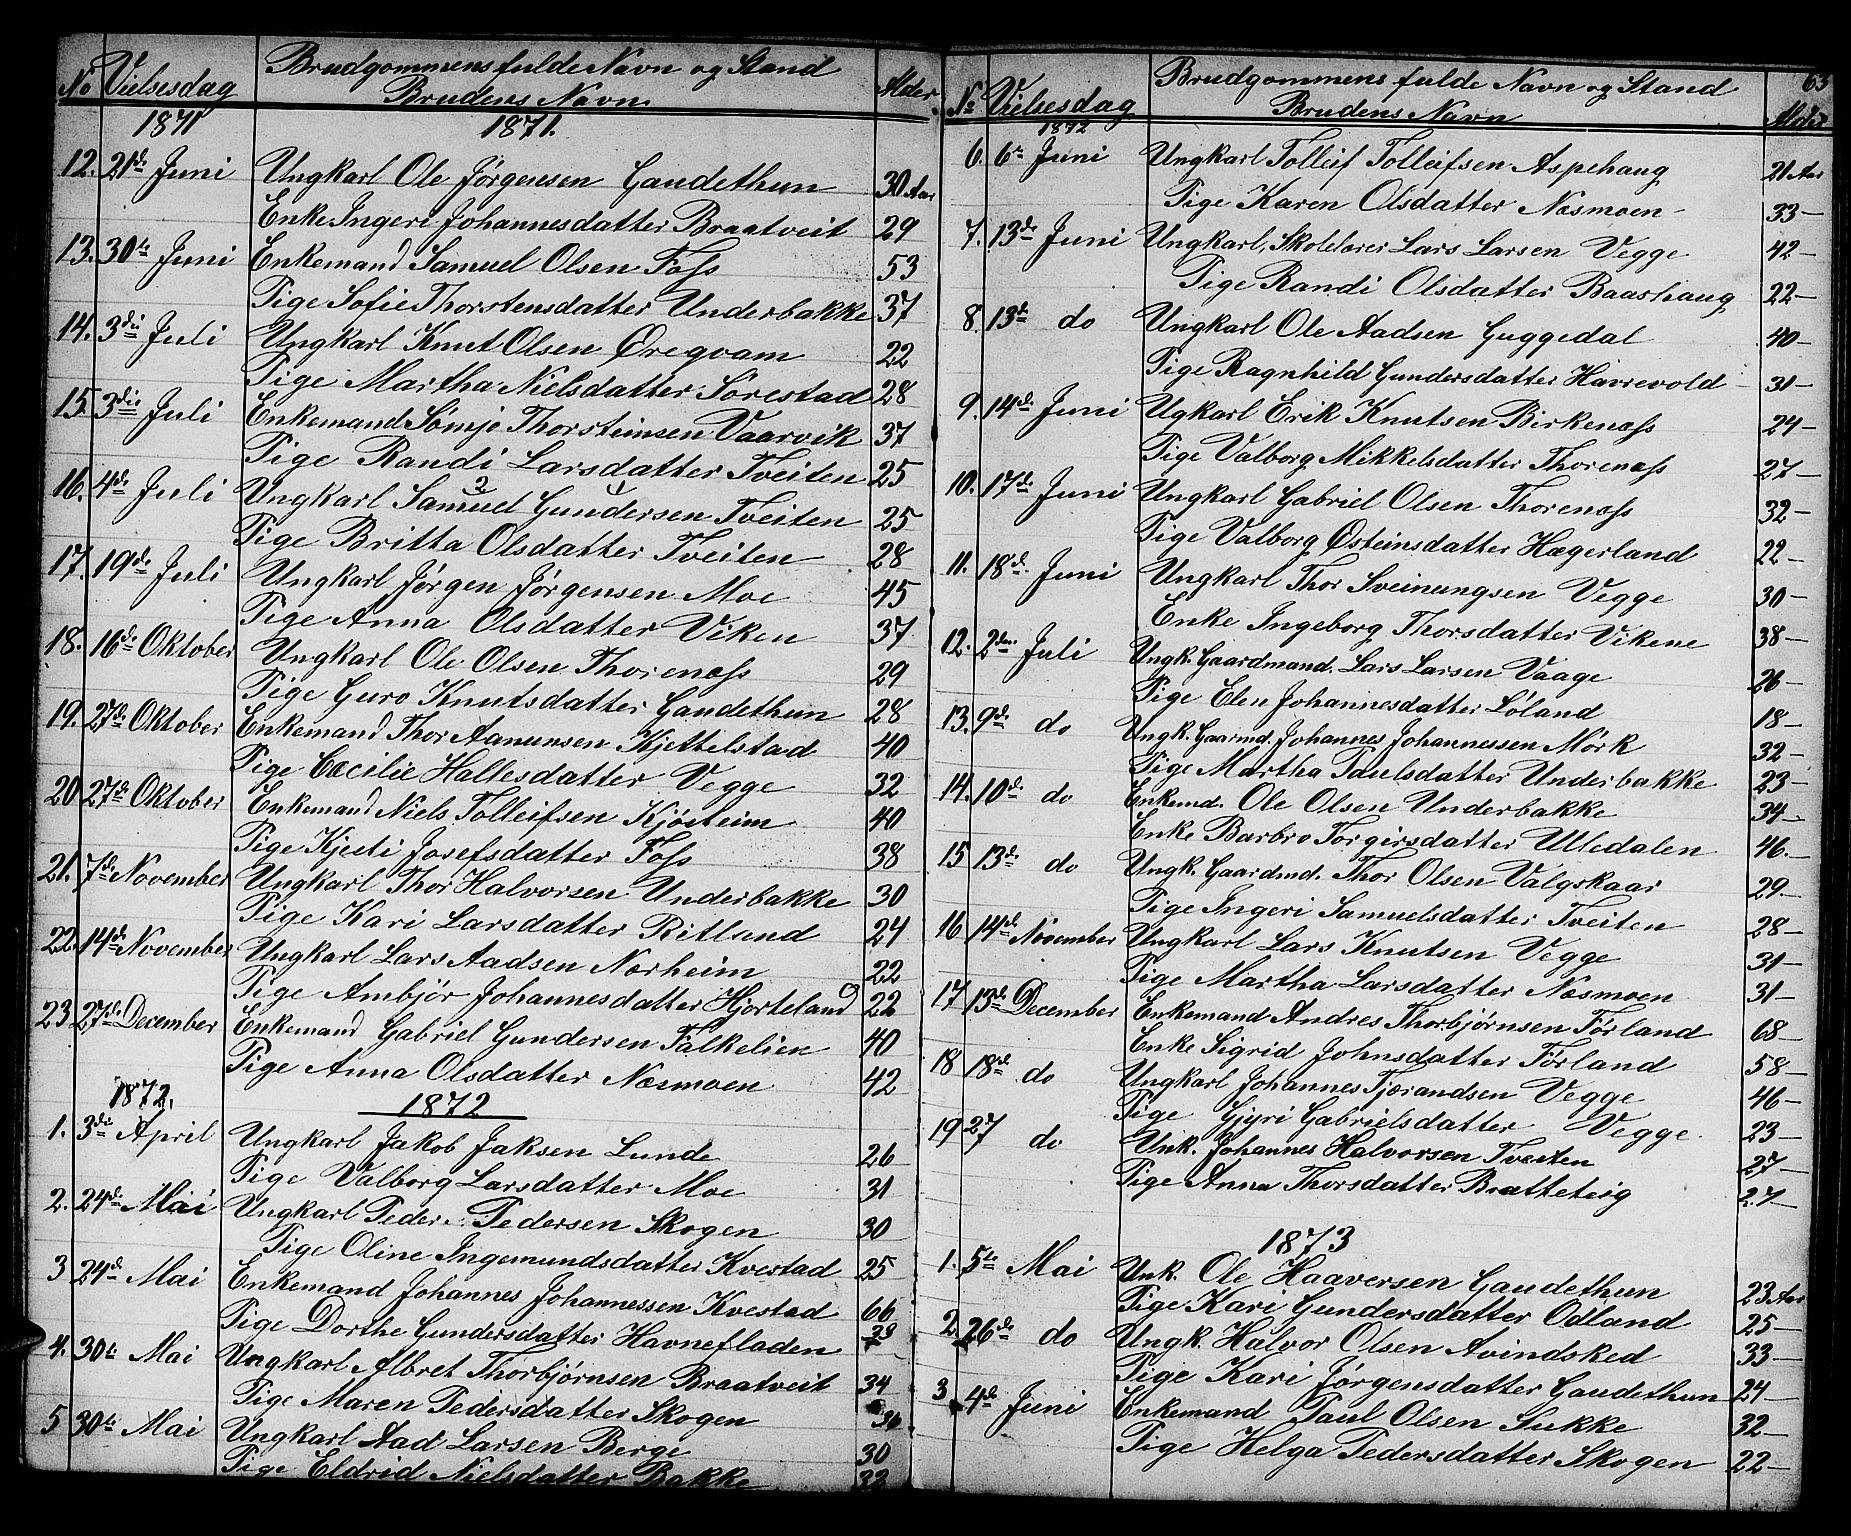 No Vielsesdag Brudgommens fulde Navn og Stand Alder
Brudens Navn
1871 1871.
12. 21de Juni Ungkarl Ole Jørgensen Gaudethun 30 Aar
Enke Ingeri Johannesdatter Braatveit 29
13. 30te Juni Enkemand Samuel Olsen Foss 53
Pige Sofie Thorstensdatter Underbakke 37
14. 3die Juli Ungkarl Knut Olsen Øregvam 22
Pige Martha Nielsdatter Sørestad 28
15. 3die Juli Enkemand Sømje Thorsteinsen Vaarvik 37
Pige Randi Larsdatter Tveiten 25
16. 4de Juli Ungkarl Samuel Gundersen Tveiten 25
Pige Britta Olsdatter Tveiten 28
17. 19de Juli Ungkarl Jørgen Jørgensen Moe 45
Pige Anna Olsdatter Viken 37
18. 16de Oktober Ungkarl Ole Olsen Thorenæss 29
Pige Guro Knutsdatter Gaudethun 28
19. 27de Oktober Enkemand Thor Aanunsen Kjettelstad 40
Pige Cæcilie Hallesdatter Vegge 32
20 27de Oktober Enkemand Niels Tolleifsen Kjøsteim 40
Pige Kjesti Josefsdatter Foss 38
21. 7de November Ungkarl Thor Halvorsen Underbakke 30
Pige Kari Larsdatter Ritland 24
22. 14de November Ungkarl Lars Aadsen Norheim 22
Pige Ambjør Johannesdatter Hjorteland 22
23. 27de December Enkemand Gabriel Gundersen Falkelien 40
Pige Anna Olsdatter Næsmoen 42
1872. 1872
1. 3die April Ungkarl Jakob Jaksen Lunde 26
Pige Valborg Larsdatter Moe 31
2. 24de Mai Ungkarl Peder Pedersen Skogen 30
Pige Oline Ingemundsdatter Kvestad 25
3 24de Mai Enkemand Johannes Johannessen Kvestad 66
Pige Dorthe Gundersdatter Havnefladen
4. 30te Mai Ungkarl Albret Thorbjørnsen Braatveit 34
Pige Maren Pedersdatter Skogen 36
5 30te Mai Ungkarl Aad Larsen Berge 30
Pige Eldrid Nielsdatter Bakke 32
63
No Vielsesdag Brudgommens fulde Navn og Stand
Brudens Navn Alder
1872
6. 6te Juni Ungkarl Tolleif Tolleifsen Aspehaug 21 Aar
Pige Karen Olsdatter Næsmoen 33—
7. 13de Juni Ungkarl, Skolelærer Lars Larsen Vegge 42—
Pige Randi Olsdatter Baashaug 22—
8. 13de do Ungkarl Ole Aadsen Guggedal 40—
Pige Ragnhild Gundersdatter Havrevold 31—
9. 14de Juni Ugkarl Erik Knutsen Birkenæss 24—
Pige Valborg Mikkelsdatter Thorenæss 27—
10. 17de Juni Ungkarl Gabriel Olsen Thorenæss 32—
Pige Valborg Østeinsdatter Hægerland 22—
11. 18de Juni Ungkarl Thor Sveinungsen Vegge 30—
Enke Ingeborg Thorsdatter Vikene 38—
12. 2den Juli Ungk. Gaardmand. Lars Larsen Vaage 26—
Pige Elen Johannesdatter Løland 18—
13. 9de do Ungk. Gaarmd. Johannes Johannessen Mørk 32—
Pige Martha Paulsdatter Underbakke 23—
14. 10de do Enkemd. Ole Olsen Underbakke 34—
Enke Barbro Torgirsdatter Ulledalen 46.—
15 13de do Ungk. Gaardmd. Thor Olsen Valgskaar 29.—
Pige Ingeri Samuelsdatter Tveiten 28—
16 14de November Ungkarl Lars Knutsen Vegge 31—
Pige Martha Larsdatter Næsmoen 31—
17 13de December Enkemand Andres Thorbjørnsen Førland 68—
Enke Sigrid Johnsdatter Førland 58—
18 18de do Ungkarl Johannes Tjærandsen Vegge 46—
Pige Gjyri Gabrielsdatter Vegge. 23—
19 27 do Unk. Johannes Halvorsen Tveiten 27—
Pige Anna Thorsdatter Bratteteig 27—
1873
1. 5te Mai Unk. Ole Haaversen Gaudethun 23 Aar
Pige Kari Gundersdatter Odland 25—
2. 26de do Ungk. Halvor Olsen Avindsked 33—
Pige Kari Jørgensdatter Gaudethun 24—
3 4de Juni Enkemand Paul Olsen Sukke 32—
Pige Helga Pedersdatter Skogen 22—